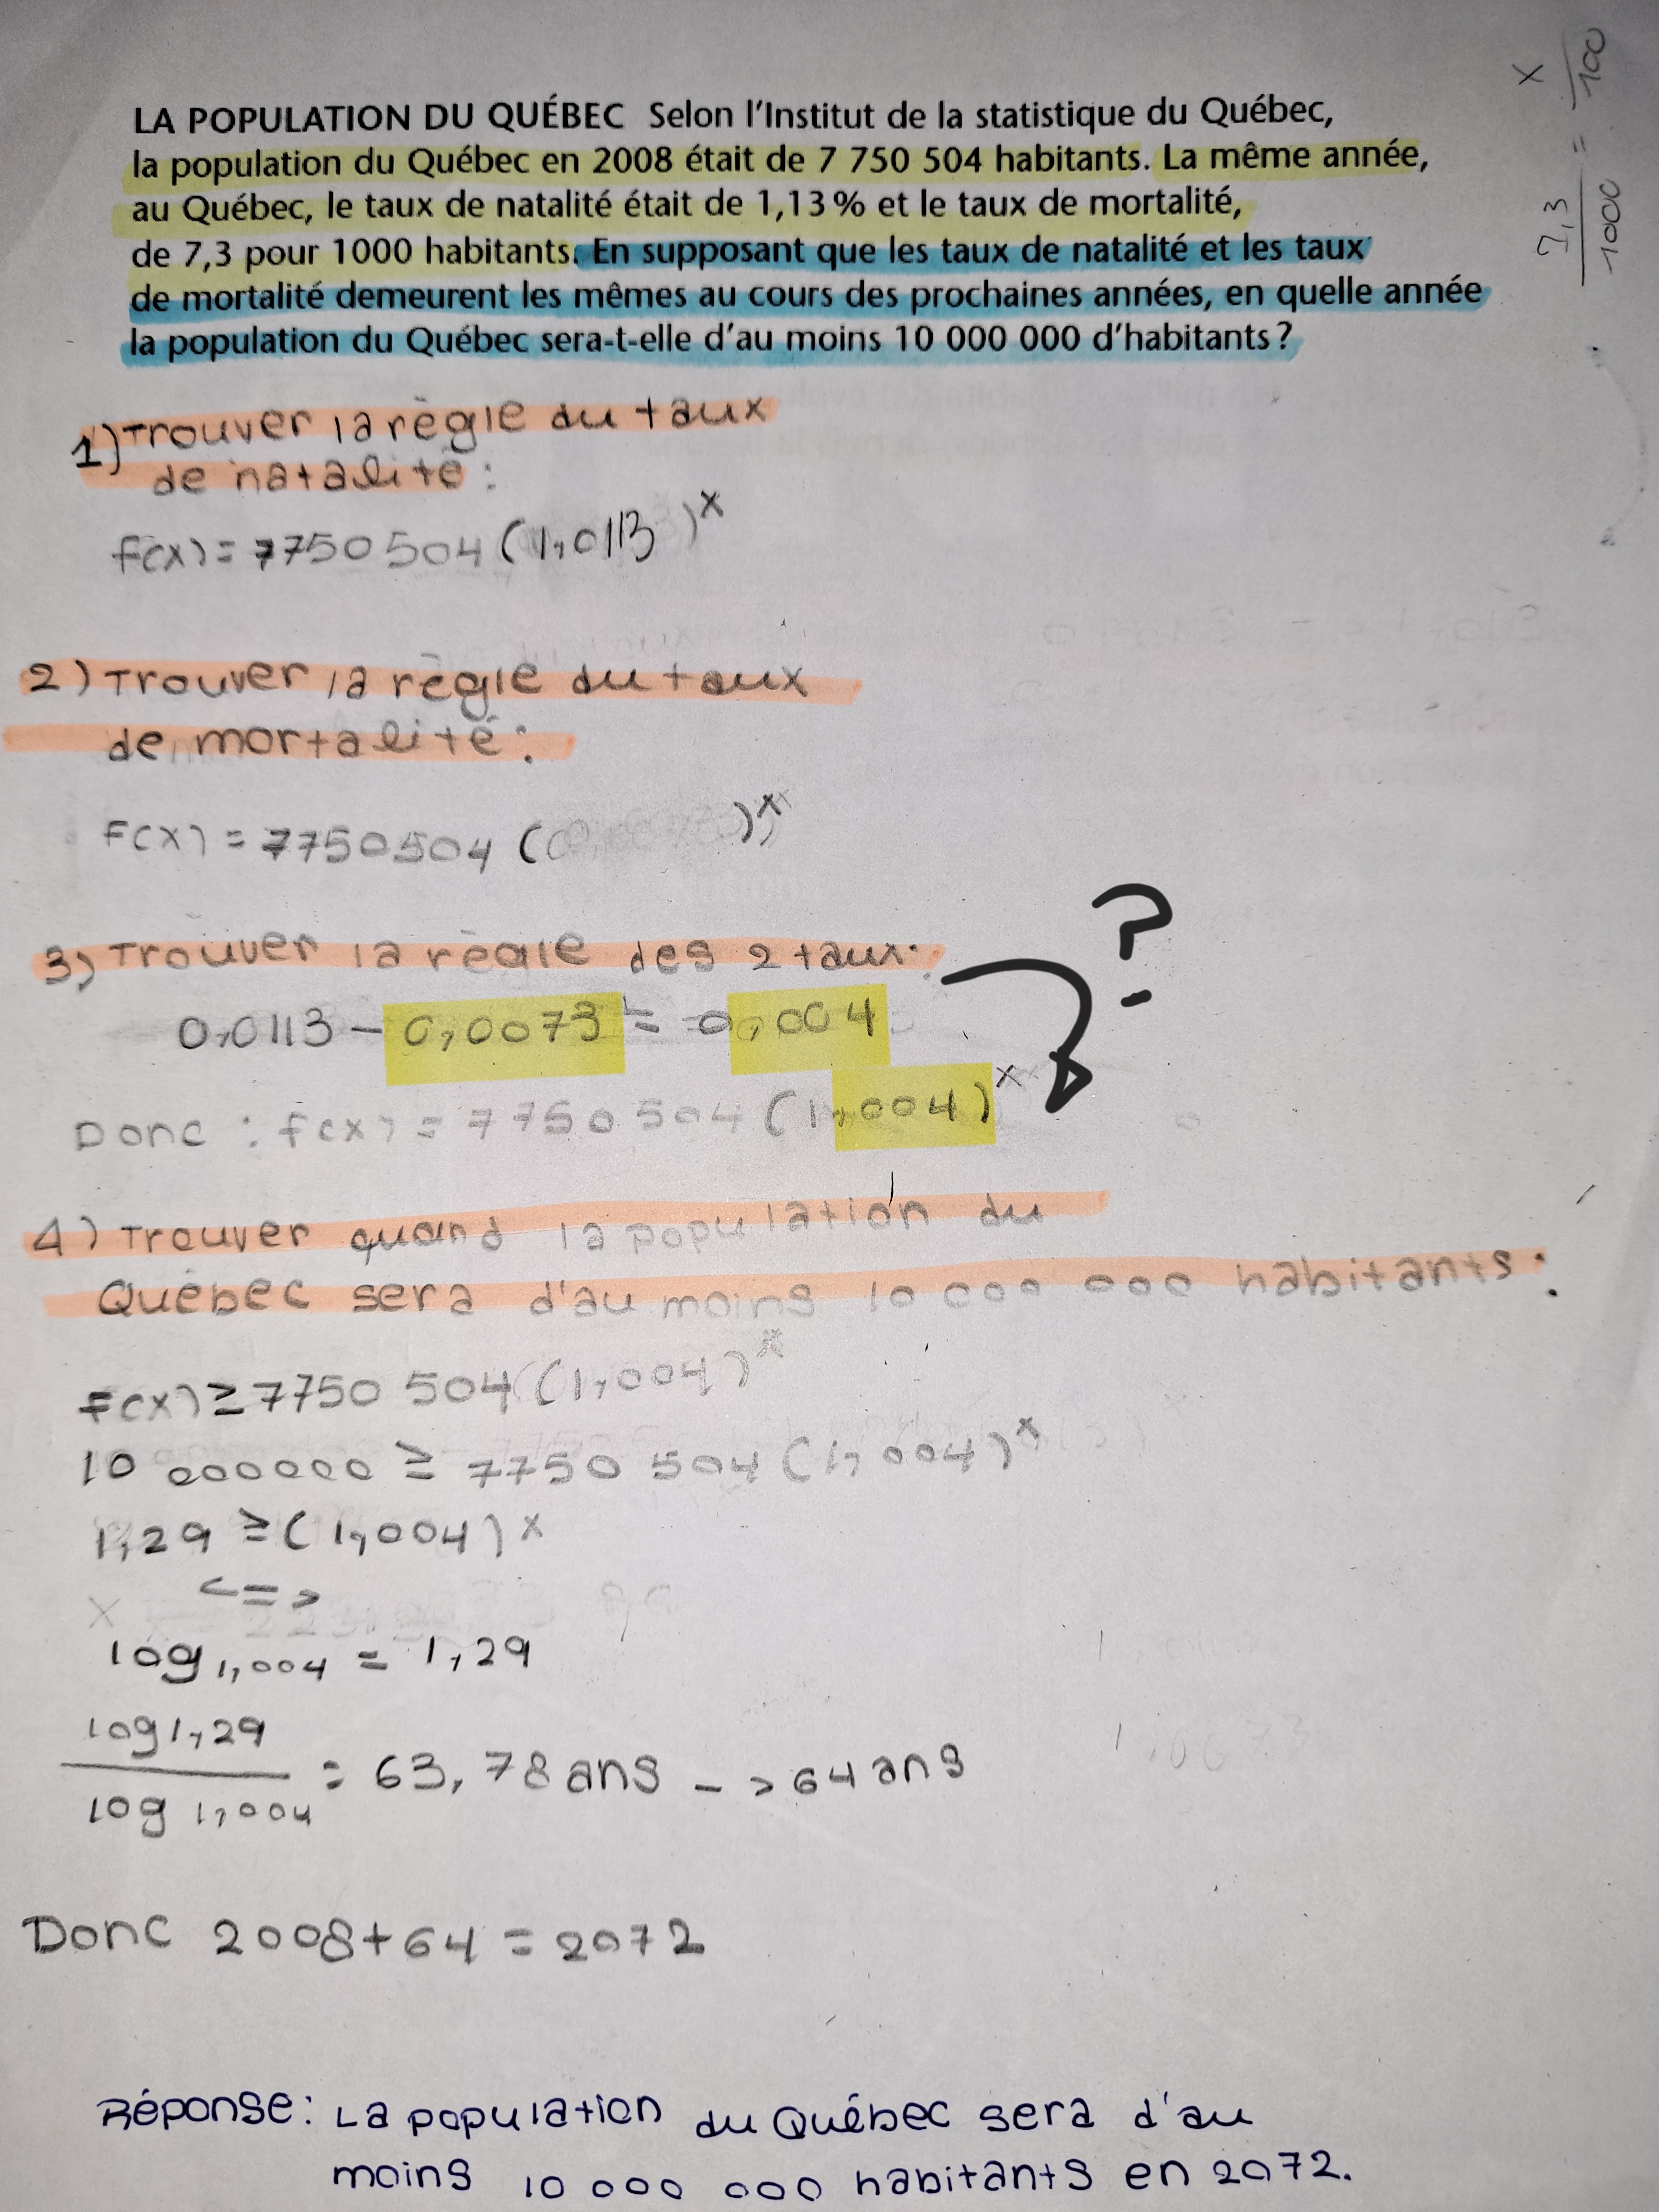 LA POPULATION DU QUÉBEC Selon l'Institut de la statistique du Québec,
la population du Québec en 2008 était de 7 750 504 habitants. La même année,
au Québec, le taux de natalité était de 1,13 % et le taux de mortalité,
de 7,3 pour 1000 habitants. En supposant que les taux de natalité et les taux
de mortalité demeurent les mêmes au cours des prochaines années, en quelle année
la population du Québec sera-t-elle d'au moins 10 000 000 d'habitants?
7,3/1000 = x/100
1) Trouver la règle du taux
de natalité :
f(x) = 7750 504 (1,0113)^x
2) Trouver la règle du taux
de mortalité :
F(x) = 7750504 ( )^x
3) Trouver la règle des 2 taux :
?
0,0113 - 0,0073 = 0,004
Donc : f(x) = 7750 504 (1,004)^x
4) Trouver quand la population du
Québec sera d'au moins 10 000 000 habitants :
f(x) ≥ 7750 504 (1,004)^x
10 000000 ≥ 7750 504 (1,004)^x
1,29 ≥ (1,004)^x
<=>
log 1,004 = 1,29
log 1,29
log 1,004
= 63,78 ans -> 64 ans
Donc 2008 + 64 = 2072
Réponse : La population du Québec sera d'au
moins 10 000 000 habitants en 2072.